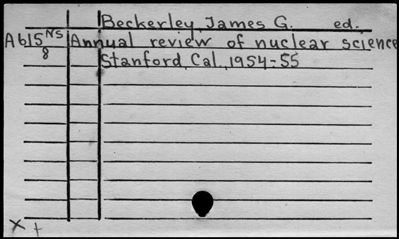 Beckerley, James G. ed.
A615 NS 8 Annual review of nuclear science
Stanford, Cal., 1954-55
x +